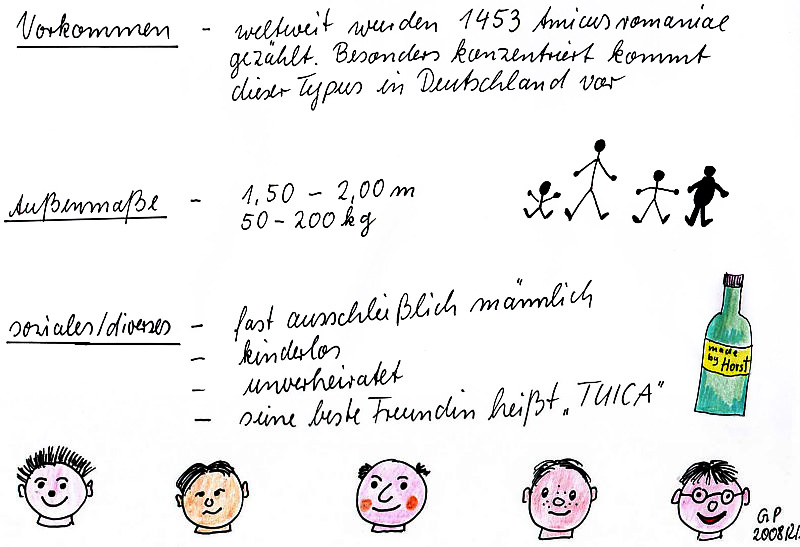 Vorkommen - weltweit wurden 1453 Amicus romaniae
gezählt. Besonders konzentriert kommt
dieser Typus in Deutschland vor
Außenmaße - 1,50 - 2,00 m
50 - 200 kg
soziales/diverses - fast ausschließlich männlich
- kinderlos
- unverheiratet
- seine beste Freundin heißt „TUICA"
made
by Horst
GP